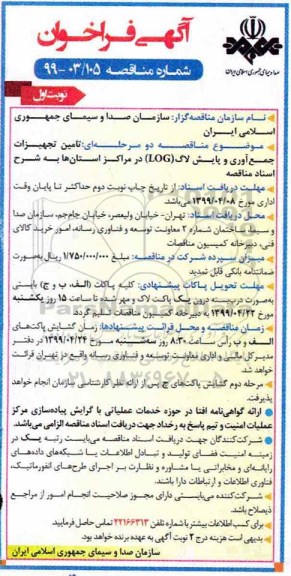 آگهی فراخوان
شماره مناقصه ۰۳/۱۰۵-۹۹
صدا و سیمای جمهوری اسلامی ایران
نوبت اول
نام سازمان مناقصه‌گزار: سازمان صدا و سیمای جمهوری
اسلامی ایران
موضوع مناقصه دو مرحله‌ای: تامین تجهیزات
جمع‌آوری و پایش لاگ (LOG) در مراکز استان‌ها به شرح
اسناد مناقصه
مهلت دریافت اسناد: از تاریخ چاپ نوبت دوم حداکثر تا پایان وقت
اداری مورخ ۱۳۹۹/۰۴/۰۸ می‌باشد.
محل دریافت اسناد: تهران- خیابان ولیعصر، خیابان جام‌جم، سازمان صدا
و سیما، ساختمان شماره ۲ معاونت توسعه و فناوری رسانه، امور خرید کالای
فنی، دبیرخانه کمیسیون مناقصات
میزان سپرده شرکت در مناقصه: مبلغ ۱/۷۵۰/۰۰۰/۰۰۰ ریال به‌صورت
ضمانتنامه بانکی قابل تمدید
مهلت تحویل پاکات پیشنهادی: کلیه پاکات (الف، ب و ج) بایستی
به‌صورت دربسته درون یک پاکت لاک و مهر شده تا ساعت ۱۵ روز یکشنبه
مورخ ۱۳۹۹/۰۴/۲۲ به دبیرخانه کمیسیون مناقصات تسلیم گردد.
زمان مناقصه و محل قرائت پیشنهادها: زمان گشایش پاکت‌های
الف و ب رأس ساعت ۸:۳۰ روز سه‌شنبه مورخ ۱۳۹۹/۰۴/۲۴ در دفتر
مدیرکل مالی و اداری معاونت توسعه و فناوری رسانه واقع در تهران قرائت
خواهد شد.
مرحله دوم گشایش پاکت‌های ج پس از ارائه نظر کارشناسی سازمان انجام خواهد
پذیرفت.
ارائه گواهی‌نامه افتا در حوزه خدمات عملیاتی با گرایش پیاده‌سازی مرکز
عملیات امنیت و تیم پاسخ به رخداد جهت دریافت اسناد مناقصه الزامی می‌باشد.
شرکت‌کنندگان جهت دریافت اسناد مناقصه می‌بایست رتبه یک در
زمینه امنیت فضای تولید و تبادل اطلاعات یا شبکه‌های داده‌های
رایانه‌ای و مخابراتی یا مشاوره و نظارت بر اجرای طرح‌های انفورماتیک،
فناوری اطلاعات و ارتباطات دارا باشند.
شرکت‌کننده می‌بایستی دارای مجوز صلاحیت انجام امور از مراجع
ذیصلاح باشد.
برای کسب اطلاعات بیشتر با شماره تلفن ۲۲۱۶۶۳۱۳ تماس حاصل فرمایید.
بدیهی است هزینه درج ۲ نوبت آگهی به عهده برنده خواهد بود.
سازمان صدا و سیمای جمهوری اسلامی ایران